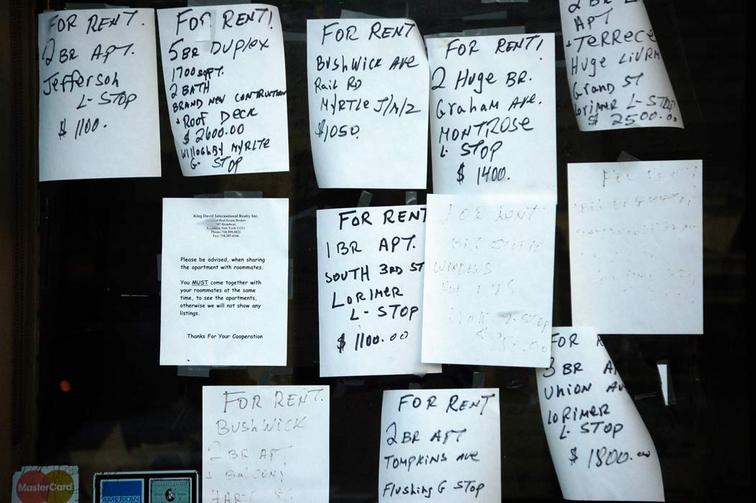 FOR RENT!
2 BR APT.
Jefferson
L-STOP
$1100.
FOR RENT!
5BR Duplex
1700 SQFT.
2 BATH
BRAND NEW CONTRUTION
+ ROOF DECK
$2600.00
WILLOGHBY MYRLTE
G- STOP
FOR RENT
BUSHWICK AVE
Rail RD
MYRTLE J/M/Z
$1050.
FOR RENT!
2 Huge BR.
Graham AVE.
MONTROSE
L- STOP
$ 1400.
2 BR
APT
+TERRECE
Huge LIVRM
Grand ST
Lorimer L-STOP
$ 2500.00
King David International Realty Inc.
Real Estate Broker
Please be advised, when sharing
the apartment with roommates.
You MUST come together with
your roommates at the same
time, to see the apartments,
otherwise we will not show any
listings.
Thanks For Your Cooperation
FOR RENT
1 BR APT.
SOUTH 3RD ST
LORIMER
L- STOP
$ 1100.00
FOR RENT
WINDOWS
FOR R
3 BR A
UNION AV
LORIMER
L- STOP
$ 1800.00
FOR RENT.
BUSHWICK
2 BR APT.
1 BALCONY
FOR RENT
2 BR APT
TOMPKINS AVE
Flushing G STOP
MasterCard
AMERICAN